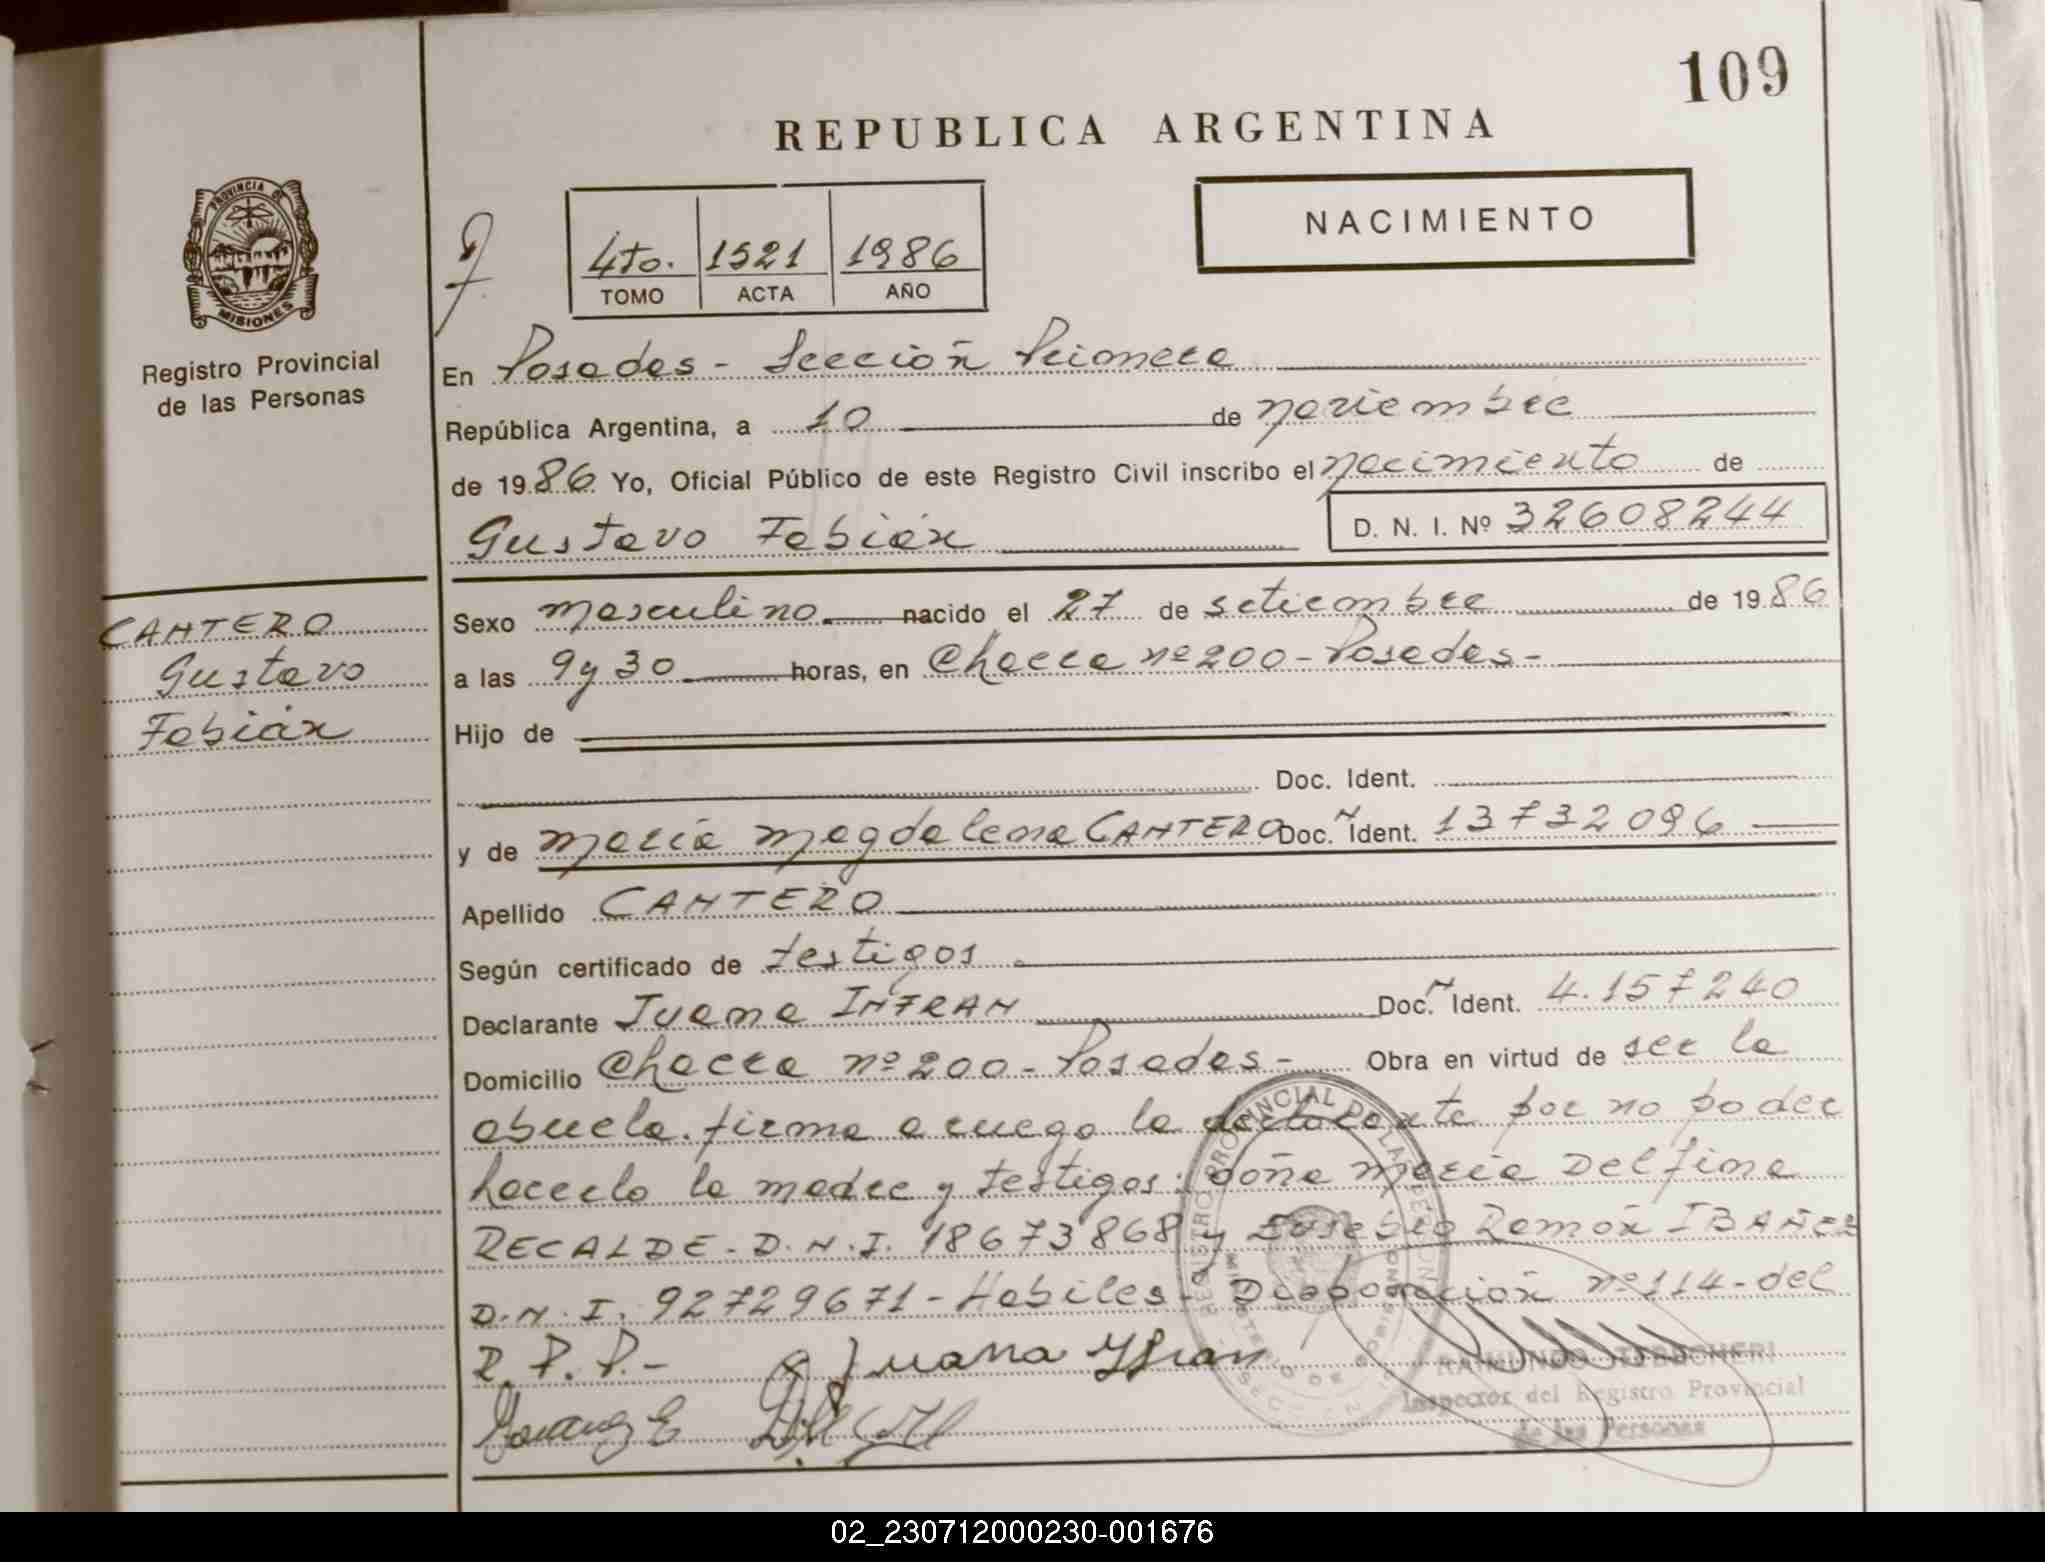 109
REPUBLICA ARGENTINA
PROVINCIA DE
MISIONES
Registro Provincial
de las Personas
4to. 1521 1986
TOMO ACTA AÑO
NACIMIENTO
En Posadas - Sección Primera
República Argentina, a 10 de noviembre
de 1986 Yo, Oficial Público de este Registro Civil inscribo el nacimiento de
Gustavo Fabián D. N. I. Nº 32608244
CANTERO
Gustavo
Fabián
Sexo masculino nacido el 27 de setiembre de 1986
a las 9 y 30 horas, en Chacra nº 200 - Posadas -
Hijo de
Doc. Ident.
y de María Magdalena CANTERO Doc. N Ident. 13732096
Apellido CANTERO
Según certificado de testigos
Declarante Juana INFRAN Doc. N Ident. 4.157240
Domicilio Chacra nº 200 - Posadas - Obra en virtud de ser la
abuela. firma a ruego la declarante por no poder
hacerlo la madre y testigos: doña María Delfina
RECALDE - D.N.I. 18673868 y Eusebio Ramón IBAÑEZ
D.N.I. 92729671 - Habiles - Disposición nº 114 - del
R.P.P. - Juana Yfran
REGISTRO PROVINCIAL DE LAS PERSONAS
MINISTERIO DE GOBIERNO
RAIMUNDO
Inspector del Registro Provincial
de las Personas
02_230712000230-001676